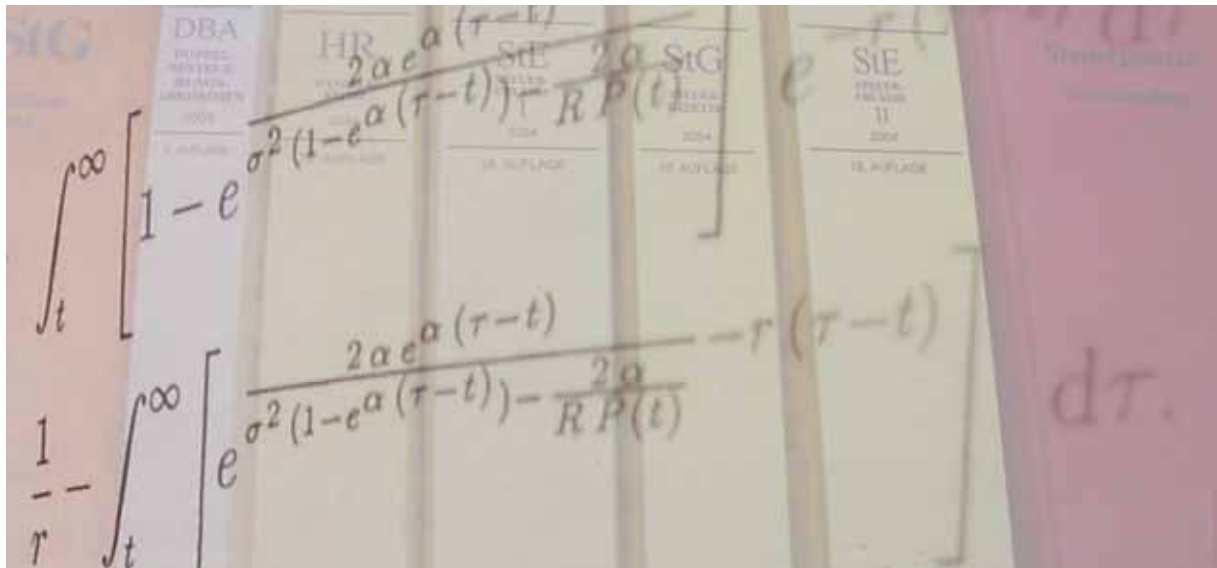 StG
DBA
DOPPEL-
BESTEUE-
RUNGS-
ABKOMMEN
2004
HR
StE
2004
18. AUFLAGE
StG
2004
StE
II
2004
18. AUFLAGE
∫_t^∞ [1 − e^{\frac{2 α e^{α (τ−t)}}{σ^2 (1−e^{α (τ−t)}) − \frac{2 α}{R P(t)}}}] e^{−r (τ−t)} dτ
\frac{1}{r} − ∫_t^∞ [e^{\frac{2 α e^{α (τ−t)}}{σ^2 (1−e^{α (τ−t)}) − \frac{2 α}{R P(t)}} − r (τ−t)}] dτ.